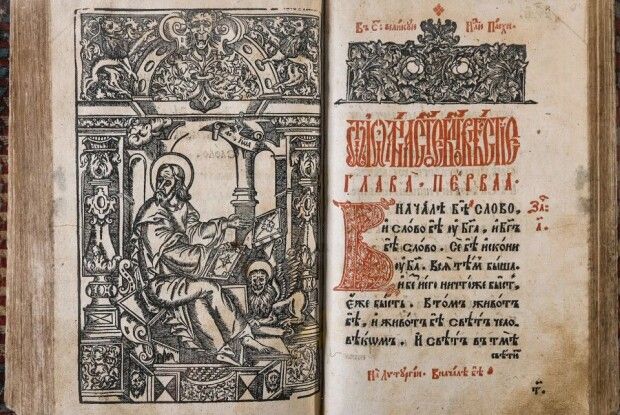 Въ С҃. великꙋю Нл҃ю Пасхи.
ГЛАВА · ПЕРВАѦ ·
Вначалѣ бѣ слово,
и слово бѣ ꙋ бг҃а, и бг҃ъ
бѣ слово. Се бѣ искони
ꙋ бг҃а. Всѧ тѣм быша.
и без него ничтоже бысть,
еже бысть. В томъ животъ
бѣ, и животъ бѣ свѣтъ чело
вѣкомъ. И свѣтъ в тмѣ
свѣти
За҃
а҃.
На Литургіи. Вначалѣ бѣ